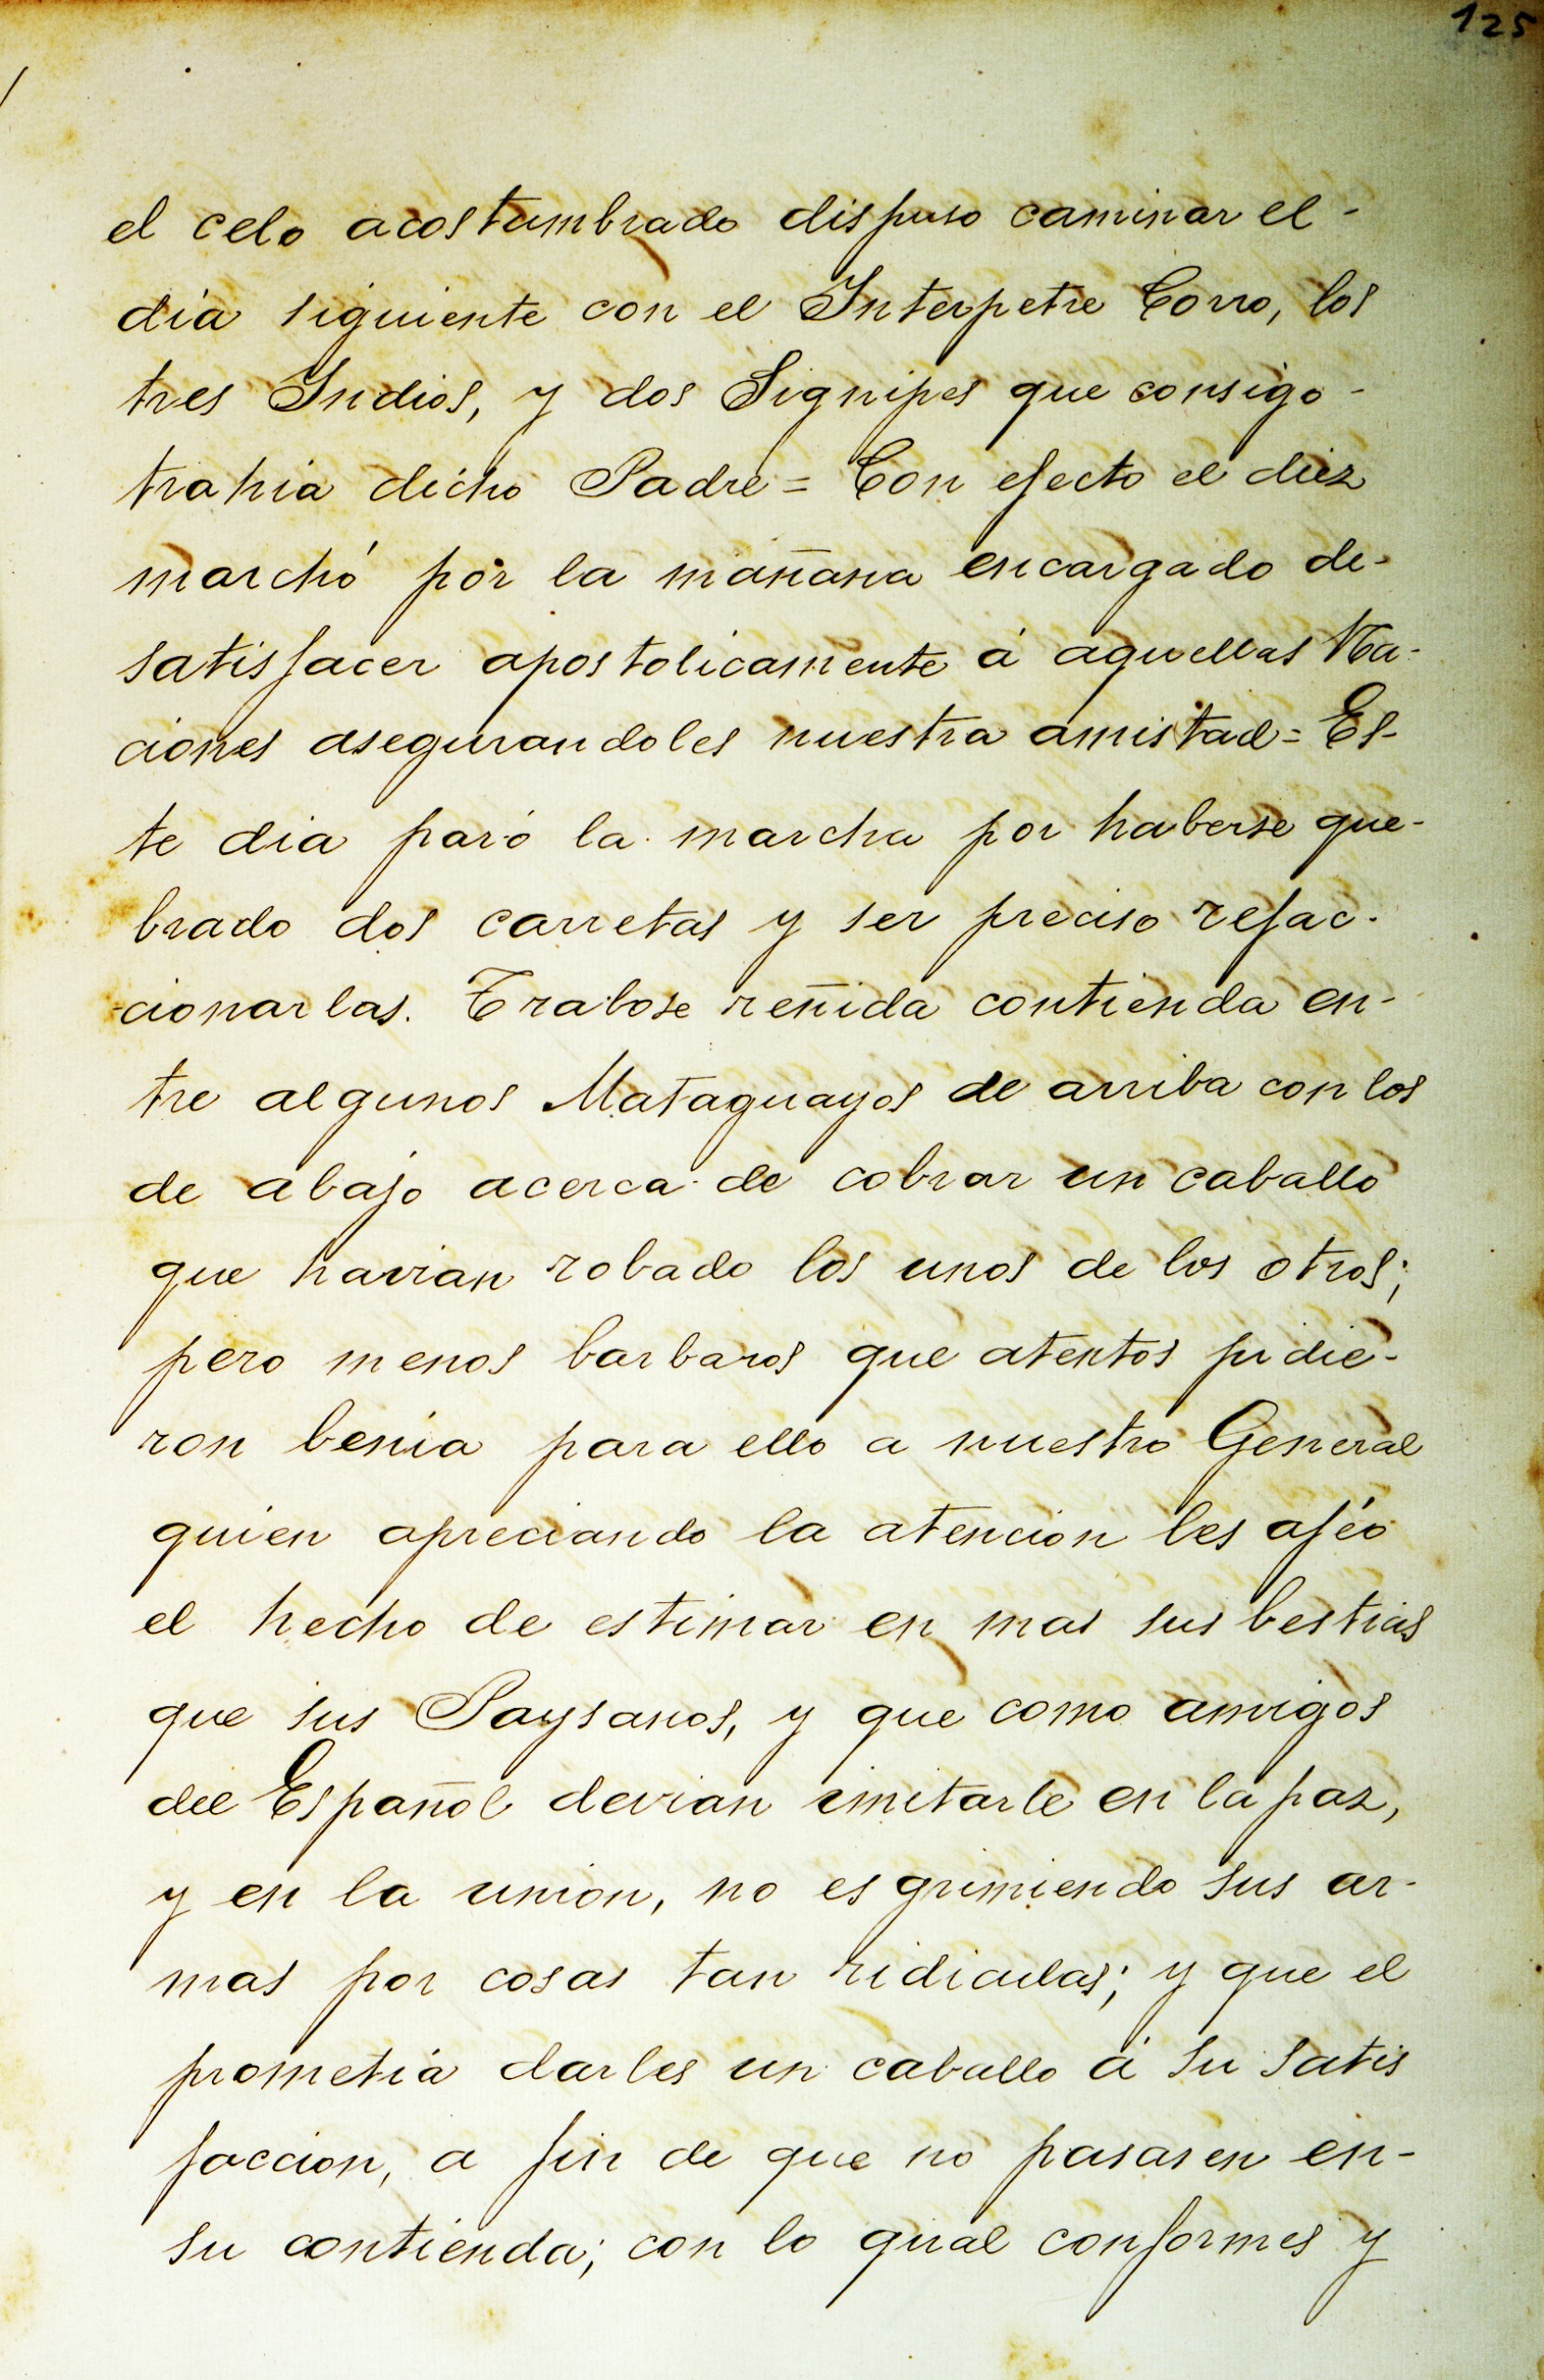 125
el celo acostumbrado dispuso caminar el-
dia siguiente con el Interpetre Corro, los
tres Indios, y dos Signipes que consigo-
trahia dicho Padre = Con efecto el diez
marchó por la mañana encargado de-
satisfacer apostolicamente á aquellas Na-
ciones asegurandoles nuestra amistad = Es-
te dia paró la marcha por haberse que-
brado dos carretas y ser preciso refac-
-cionarlas. Trabose reñida contienda en-
tre algunos Mataguayos de arriba con los
de abajo acerca de cobrar un caballo
que havian robado los unos de los otros;
pero menos barbaros que atentos pidie-
ron benia para ello a nuestro General
quien apreciando la atencion les aféo
el hecho de estimar en mas sus bestias
que sus Paysanos, y que como amigos
del Español devian imitarle en la paz,
y en la union, no esgrimiendo sus ar-
mas por cosas tan ridiculas; y que el
prometia darles un caballo á su satis
faccion, a fin de que no pasasen en-
su contienda; con lo qual conformes y